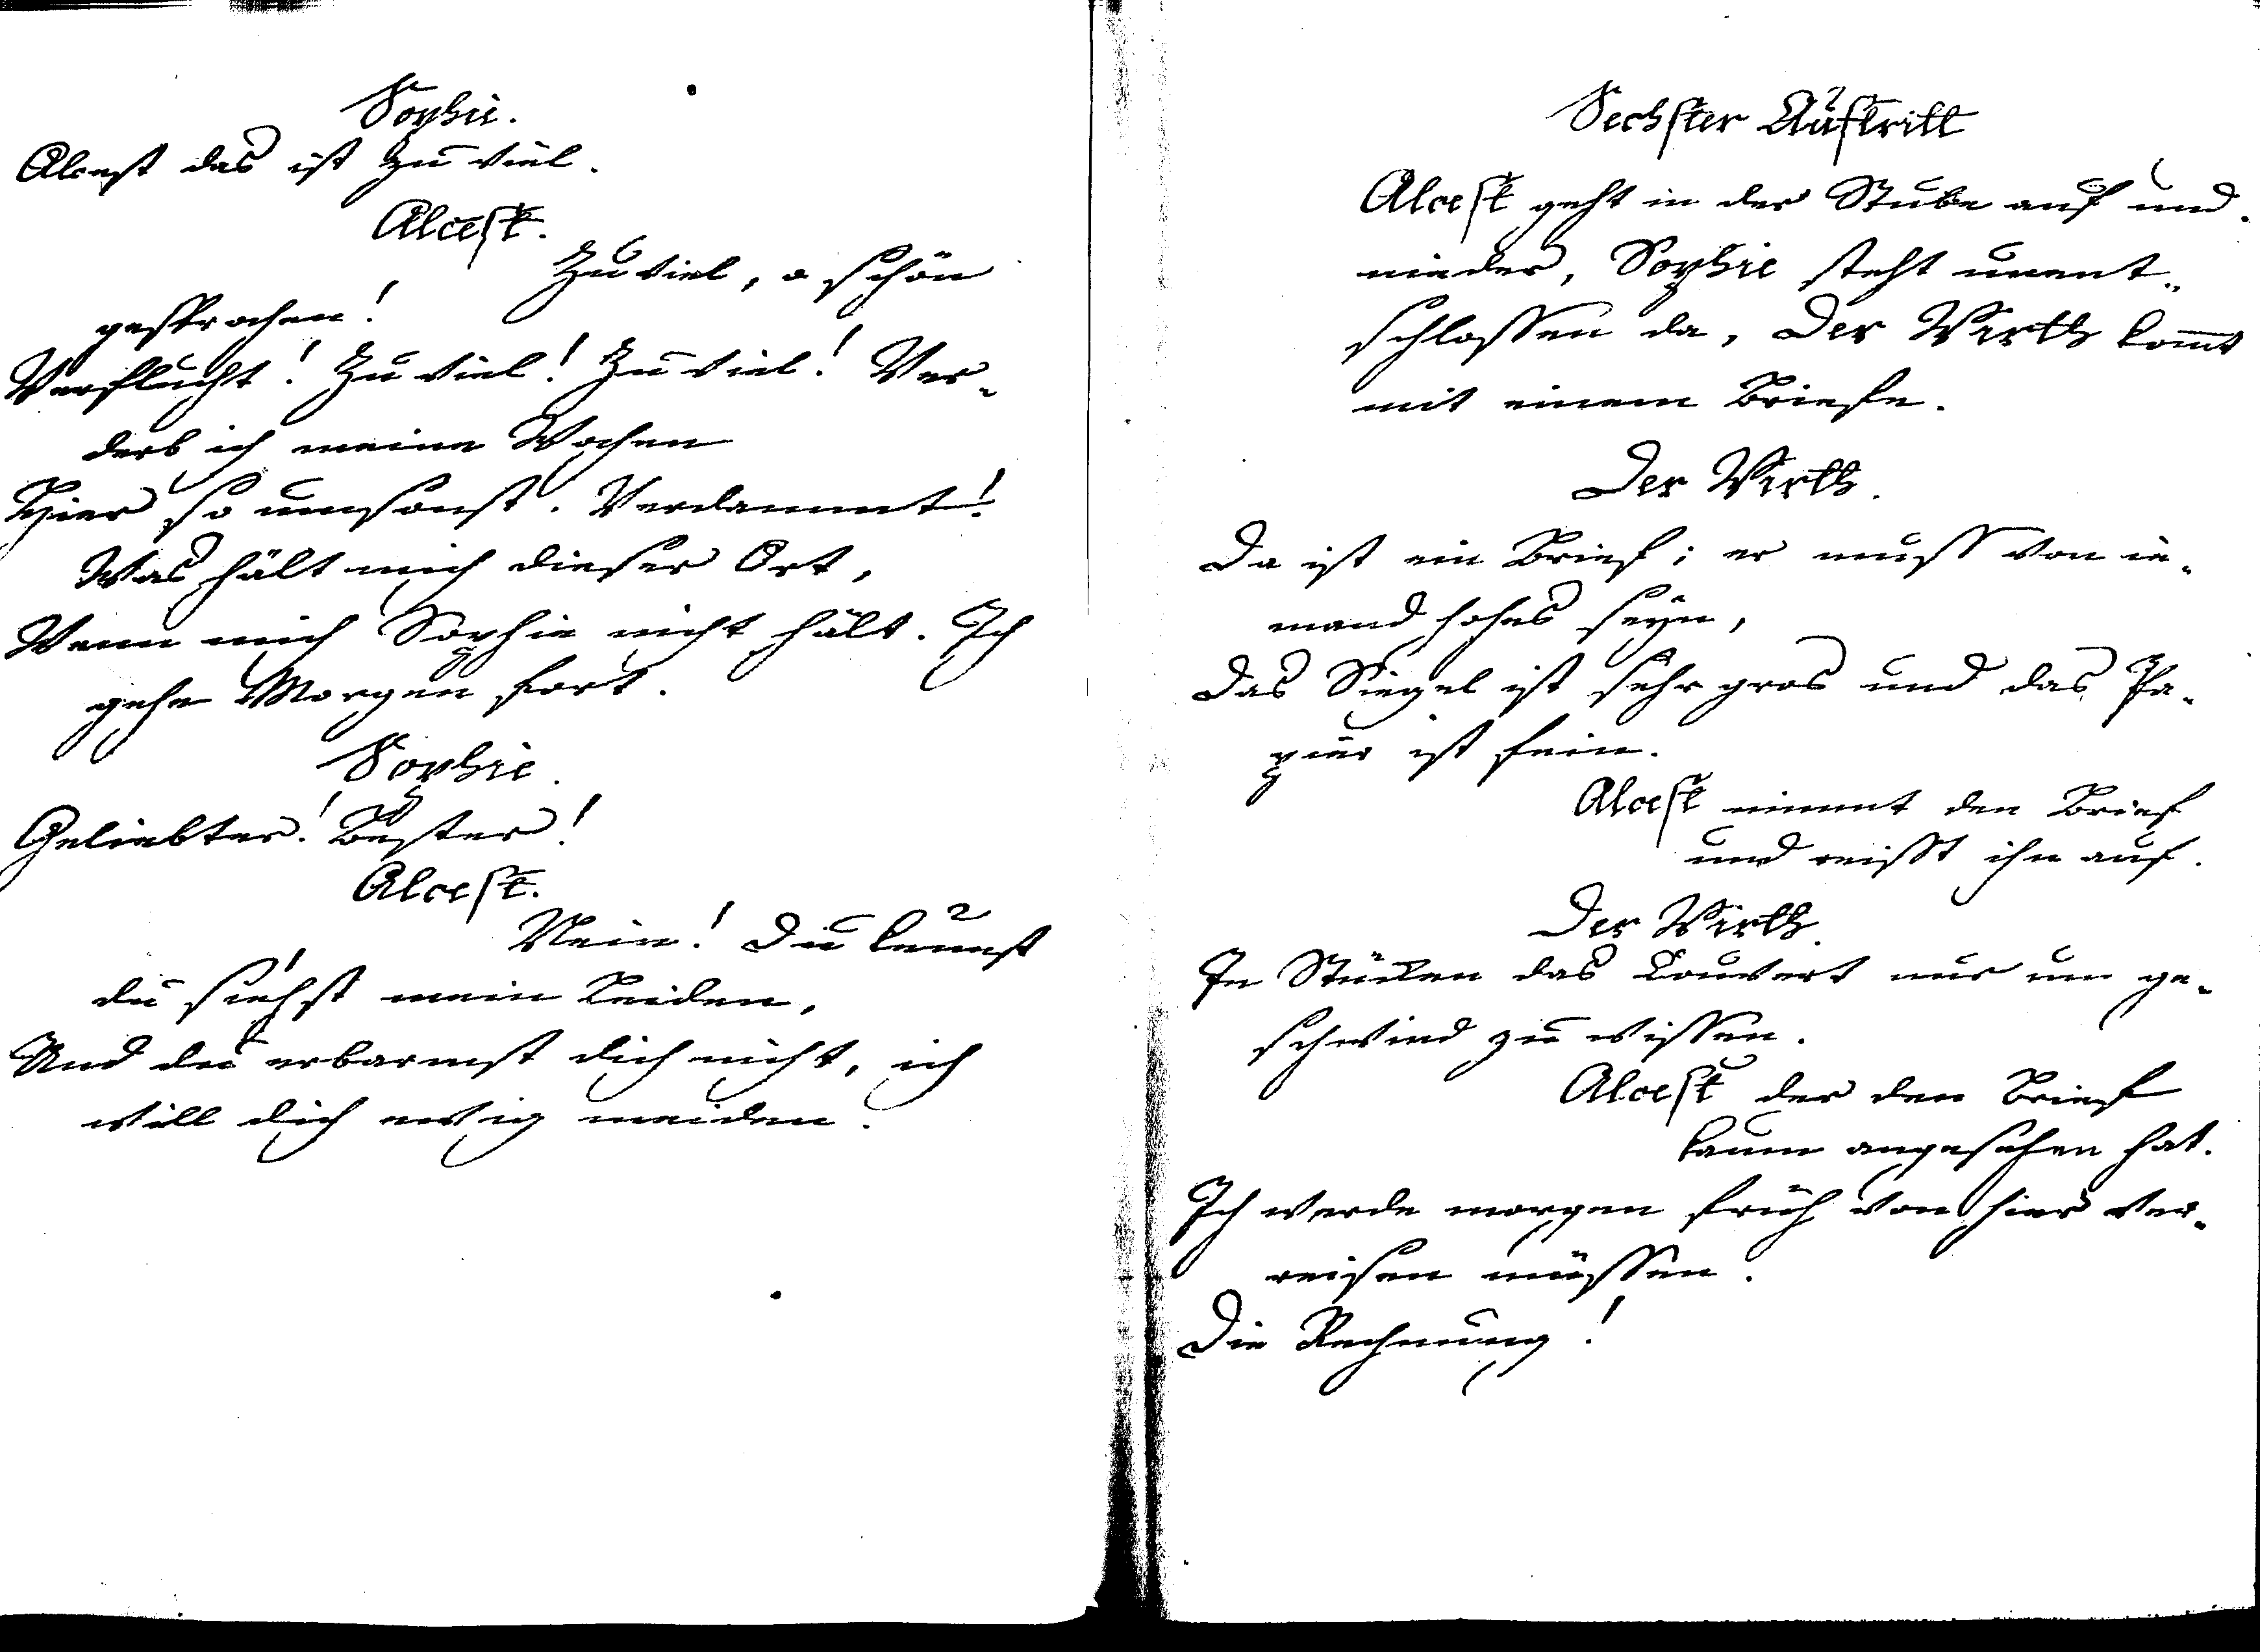 Sophie.
Alcest das ist zu viel.
Alcest.
Zu viel, o schön
gesprochen!
Verflucht! Zu viel! Zu viel! Ver-
derb ich meine Wochen
Hier so umsonst. Verdammt!
Was hält mich dieser Ort,
Wenn mich Sophie nicht hält. Ich
gehe Morgen fort.
Sophie.
Geliebter! Bester!
Alcest.
Nein! Du kennst
du siehst mein Leiden,
Und du erbarmst dich nicht, ich
will dich ewig meiden.
Sechster Auftritt
Alcest geht in der Stube auf und
nieder, Sophie steht unent-
schlossen da, Der Wirth kom̅t
mit einem Briefe.
Der Wirth.
Da ist ein Brief; er muss von ie-
mand hohes seyn,
Das Siegel ist sehr gros und das Pa-
pier ist fein.
Alcest nimmt den Brief
und reisst ihn auf.
Der Wirth.
In Stücken das Couvert nur um ge-
schwind zu wissen.
Alcest der den Brief
kaum angesehen hat.
Ich werde morgen früh von hier ver-
reisen müssen.
Die Rechnung!